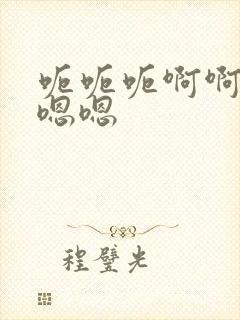 呃呃呃啊啊
嗯嗯
程璧光